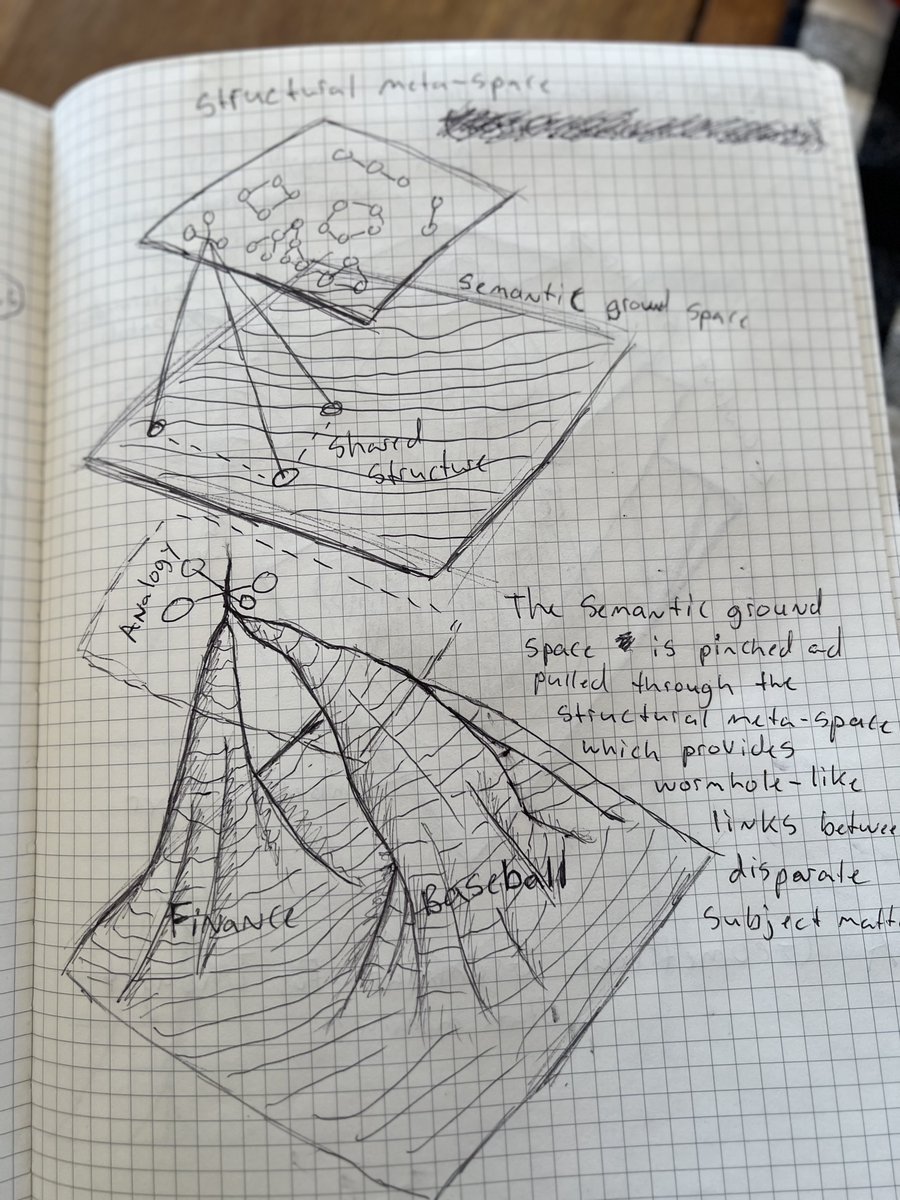 Structural meta-space
Semantic ground space
Shared
Structure
Analogy
The Semantic ground
space is pinched ad
pulled through the
structural meta-space
which provides
wormhole-like
links betwee
disparate
Subject matt
Finance
Baseball